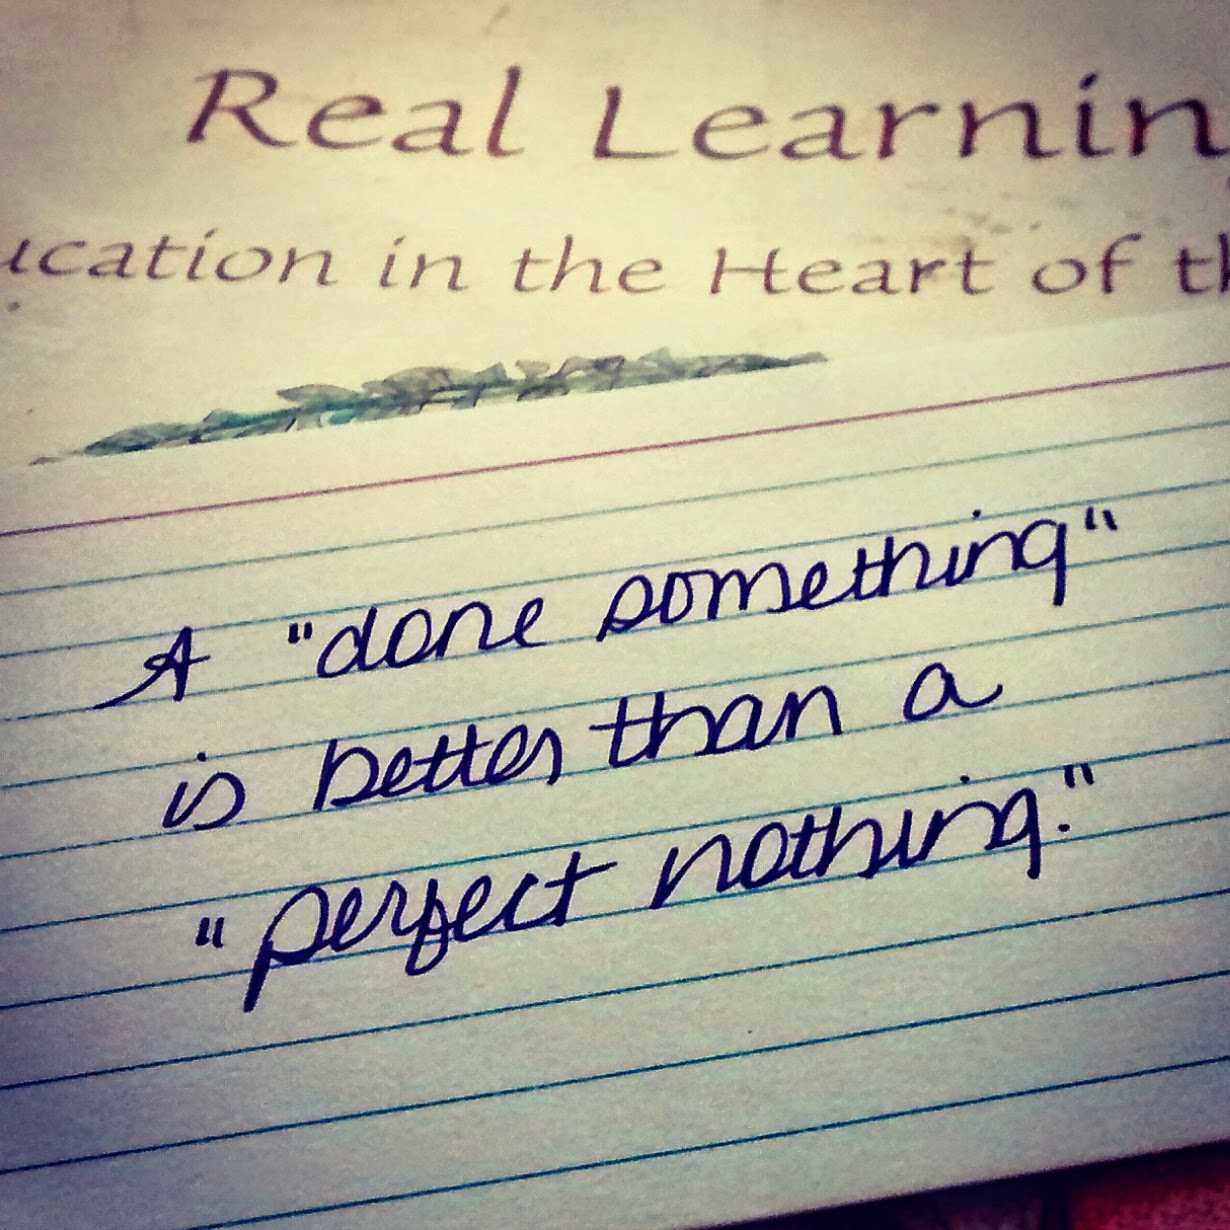 Real Learnin
ucation in the Heart of th
A "done something"
is better than a
"perfect nothing."